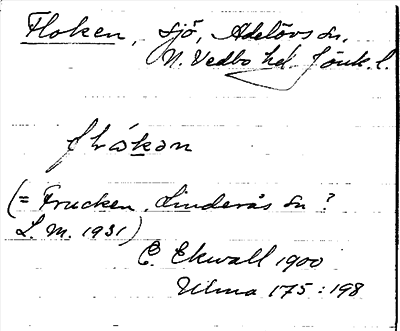 Floken, sjö, Adelövs sn.
N. Vedbo hd. Jönk. l.
flókan
(= Frucken, Linderås sn?
L. M. 1931)
E. Ekwall 1900
Ulma 175:198